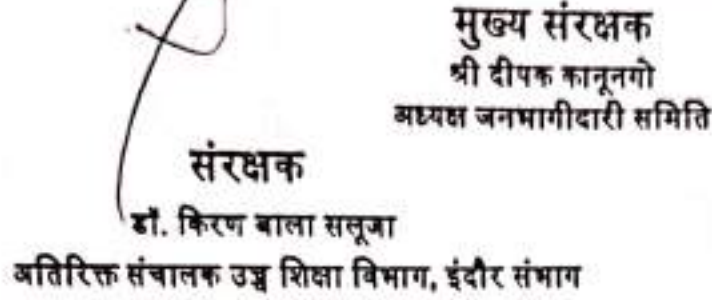 मुख्य संरक्षक
श्री दीपक कानूनगो
अध्यक्ष जनभागीदारी समिति
संरक्षक
डॉ. किरण बाला सलूजा
अतिरिक्त संचालक उच्च शिक्षा विभाग, इंदौर संभाग